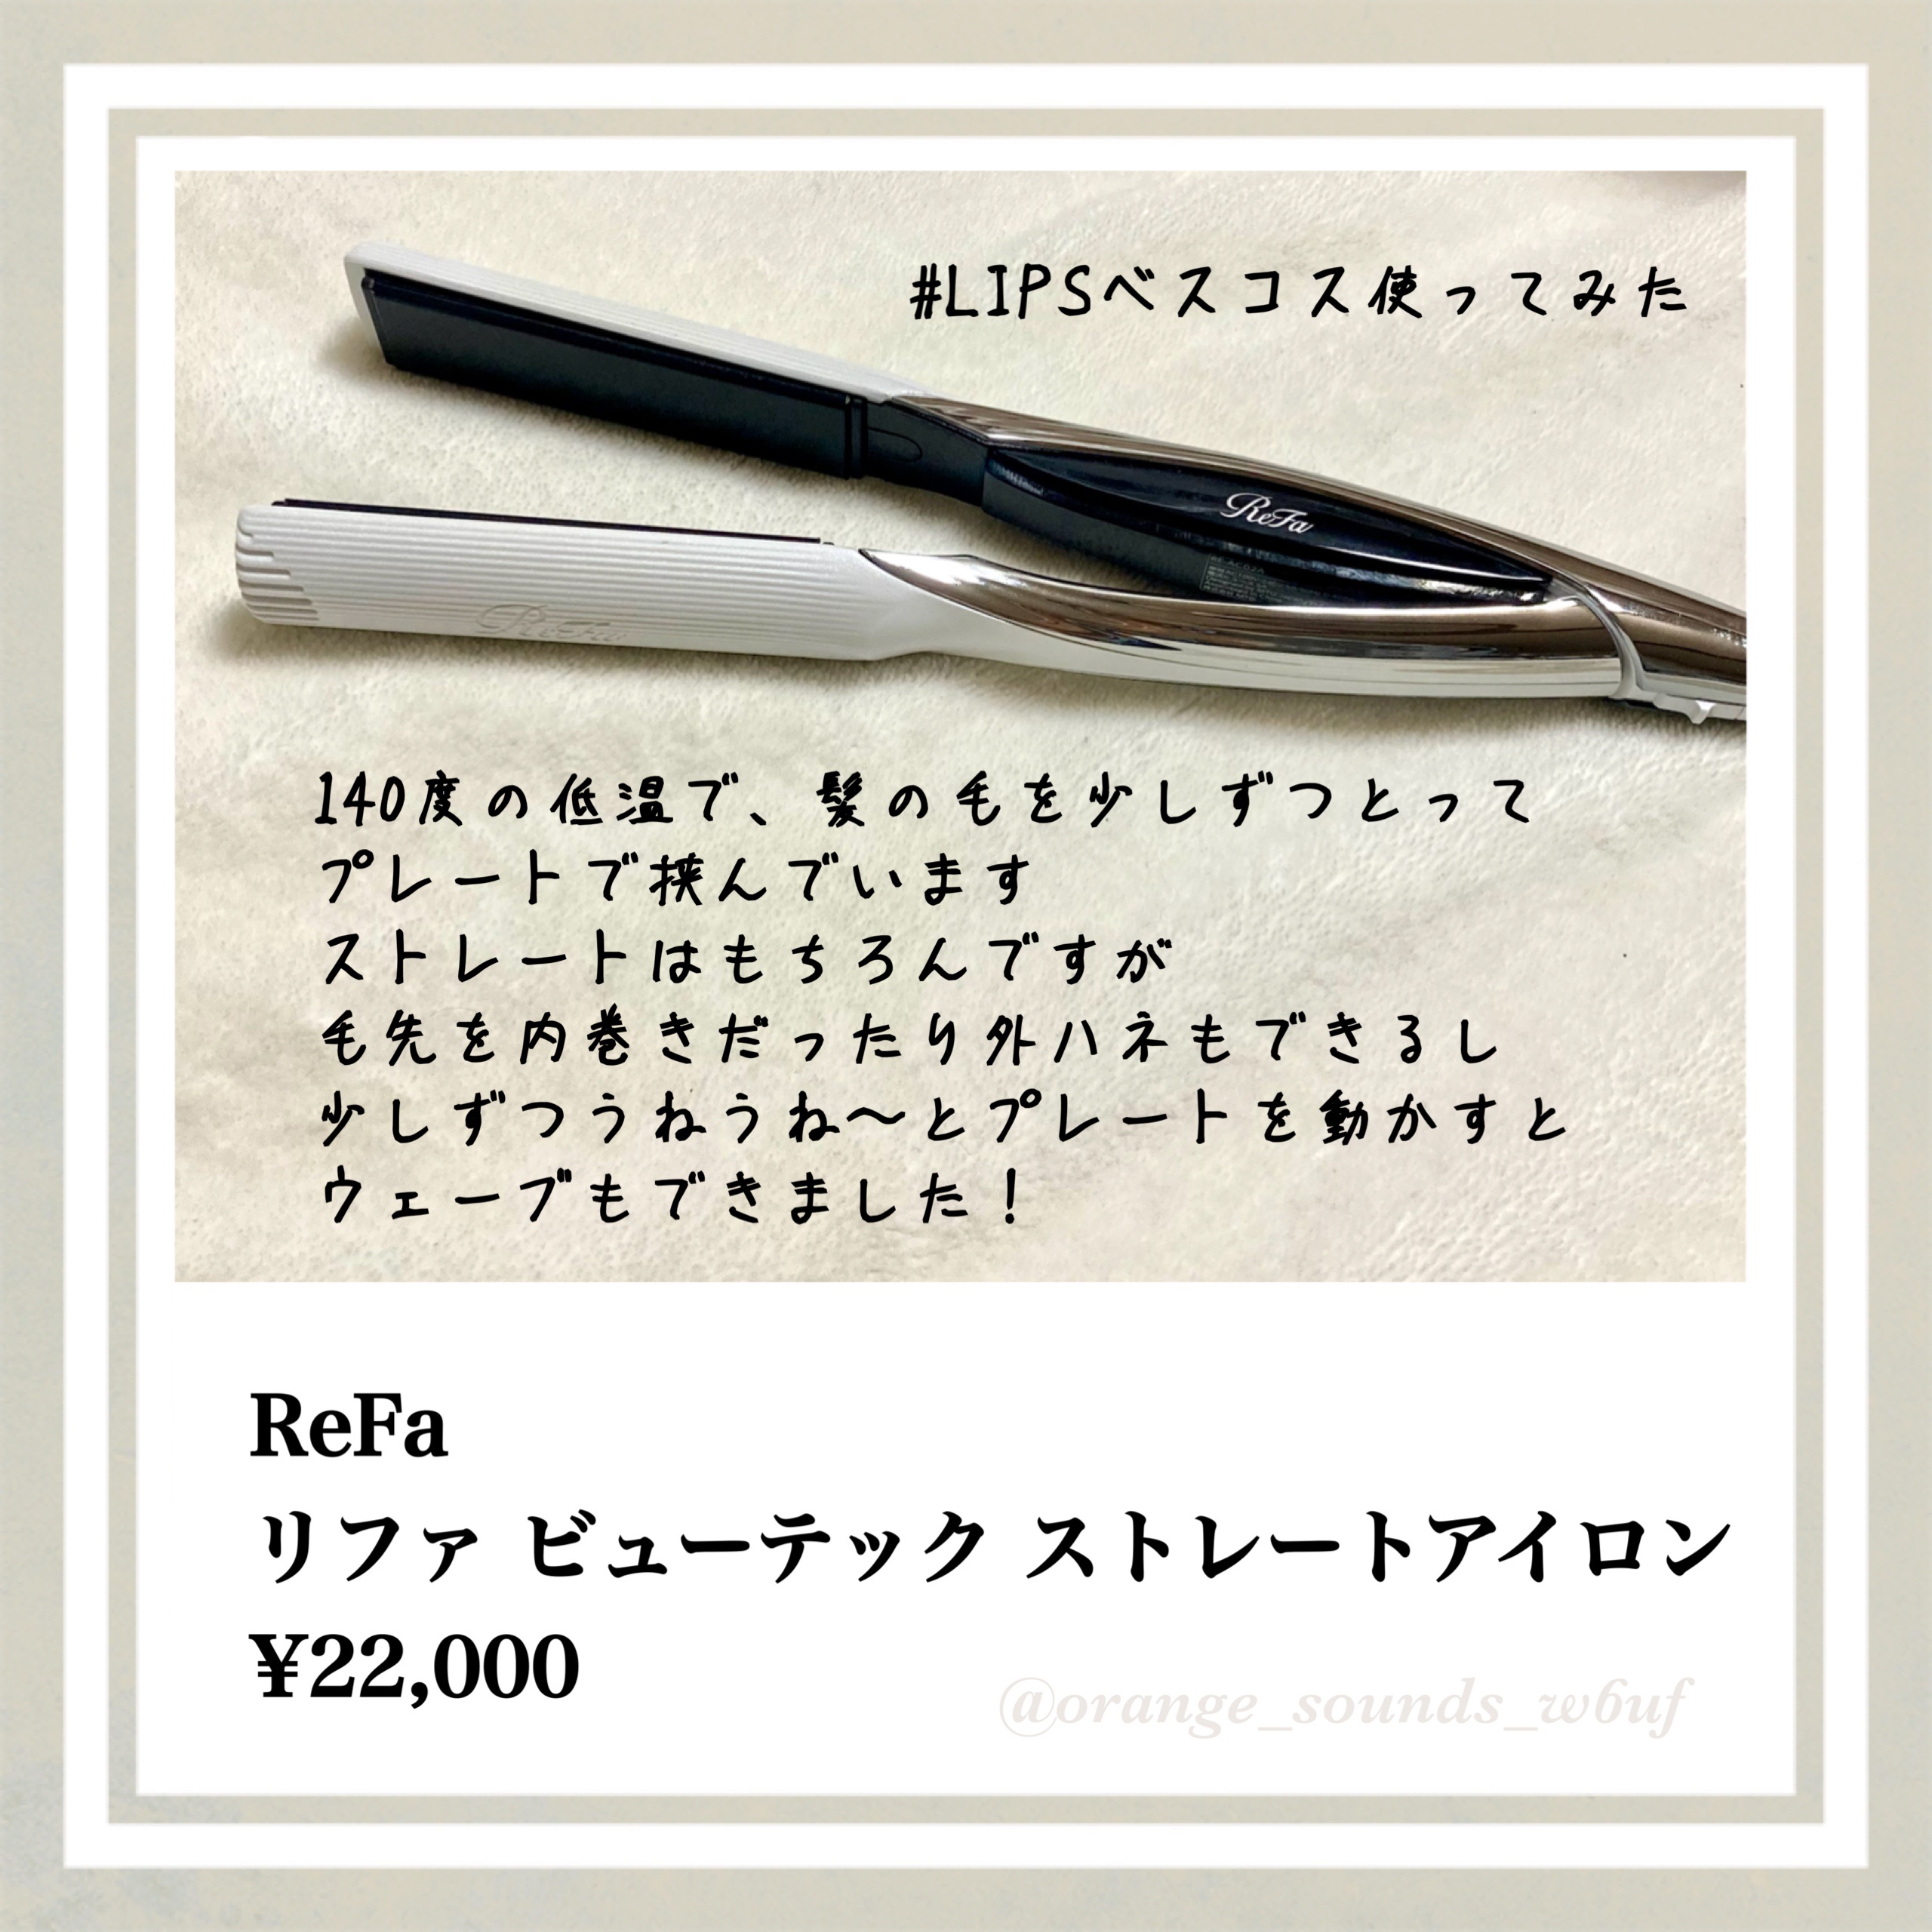 #LIPSベスコス使ってみた
ReFa
ReFa
140度の低温で、髪の毛を少しずつとって
プレートで挟んでいます
ストレートはもちろんですが
毛先を内巻きだったり外ハネもできるし
少しずつうねうね〜とプレートを動かすと
ウェーブもできました！
ReFa
リファ ビューテック ストレートアイロン
¥22,000
@orange_sounds_w6uf